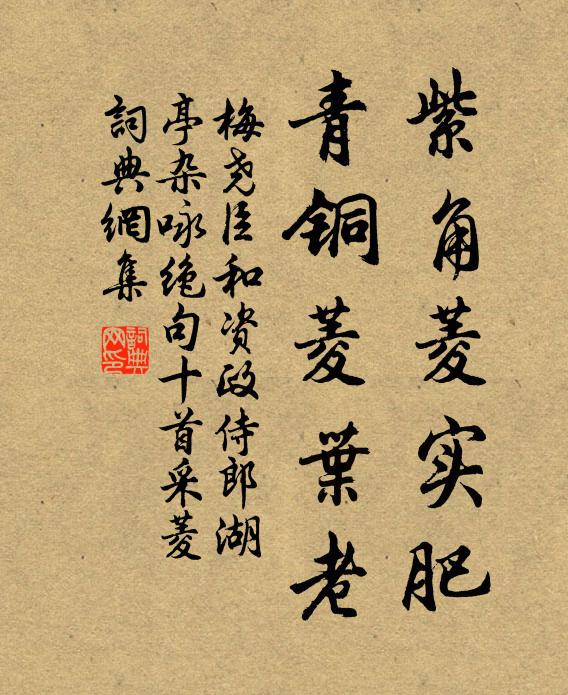 紫角菱实肥
青铜菱葉老
梅尧臣和资政侍郎湖
亭杂咏绝句十首采菱
詞典網集
詞典
网印